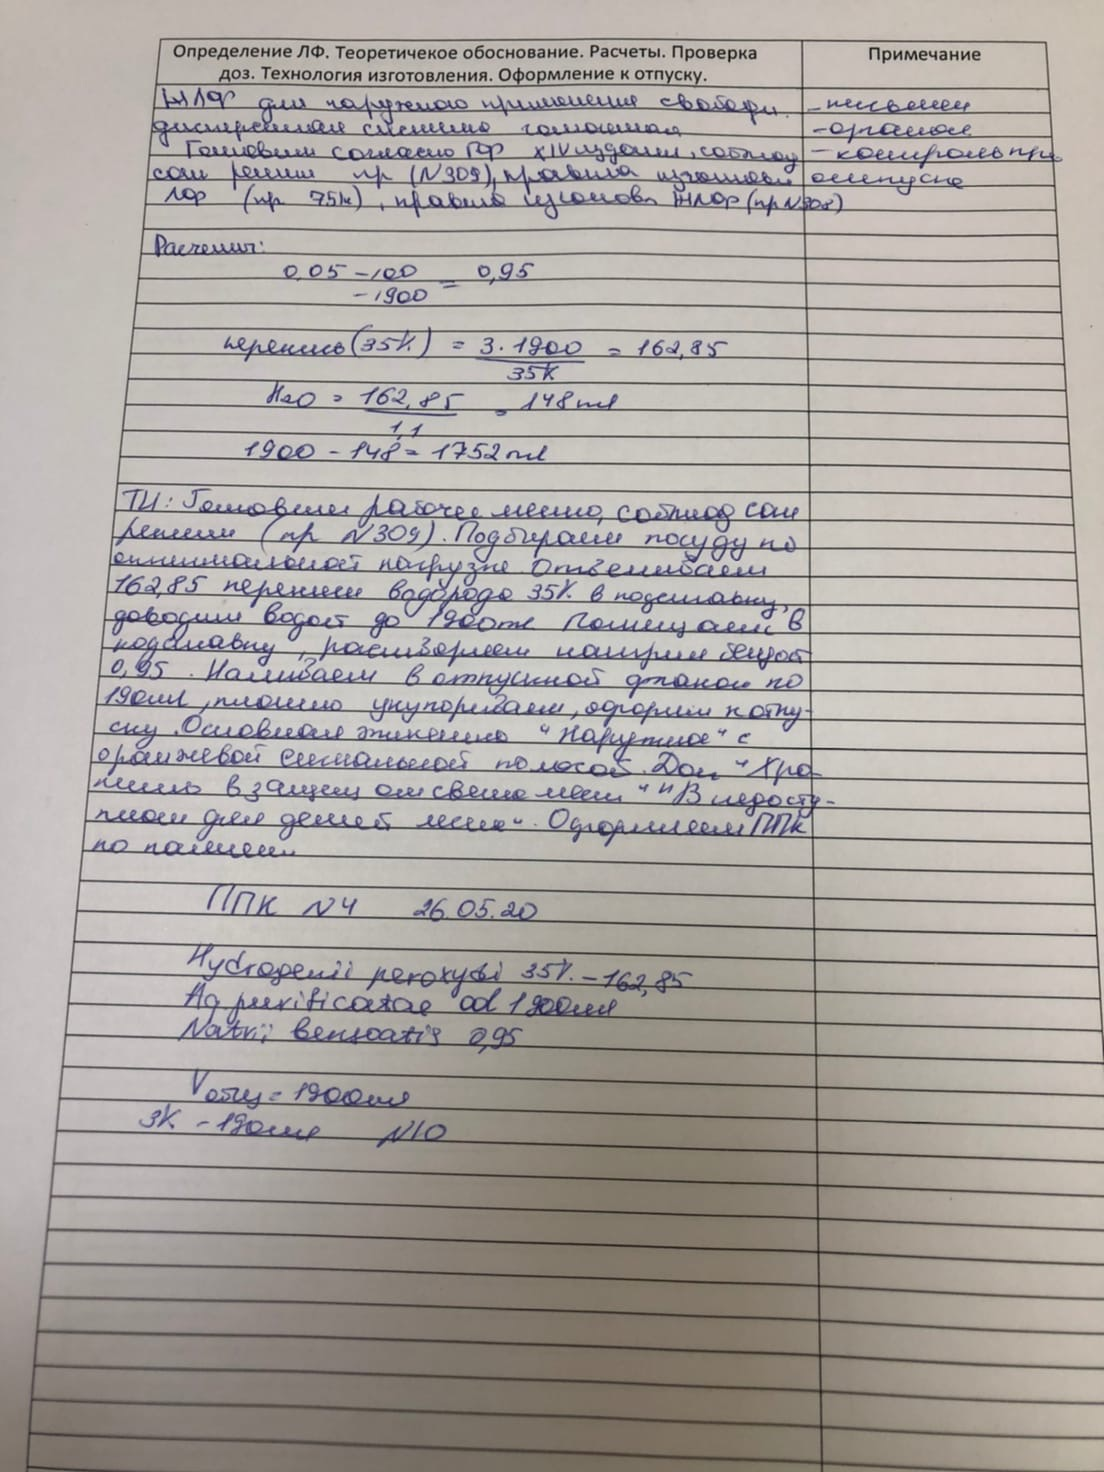 Определение ЛФ. Теоретичекое обоснование. Расчеты. Проверка
доз. Технология изготовления. Оформление к отпуску.
Примечание
ЖЛФ для наружного применения свободн.
- письмен
дисперсная система гомогенная
- органол
Готовим согласно ГФ XIV издания, соблюд
- контроль при
сан режим пр (N309), правила изготовл
отпуске
ЛФ (пр 751н), правила изготов. ЖЛФ (пр N308)
Расчеты:
0,05 - 100 = 0,95
- 1900
перекись (35%) = 3 · 1900 = 162,85
35%
H2O = 162,85 = 148 ml
1,1
1900 - 148 = 1752 ml
ТИ: Готовим рабочее место, соблюд сан
режим (пр N309). Подбираем посуду по
оптимальной нагрузке. Отвешиваем
162,85 перекиси водорода 35% в подставку,
доводим водой до 1900 мл. Помещаем в
подставку, растворяем натрия бензоат
0,95. Наливаем в отпускной флакон по
190 мл, плотно укупориваем, оформл к отпу-
ску. Основная этикетка "Наружное" с
оранжевой сигнальной полосой. Доп "Хра-
нить в защищ от света месте" "В недосту-
пном для детей месте". Оформляем ППК
по памяти.
ППК N4 26.05.20
Hydrogenii peroxydi 35% - 162,85
Aq purificatae ad 1900 ml
Natrii benzoatis 0,95
Vобщ = 1900 мл
3% - 190 мл N10